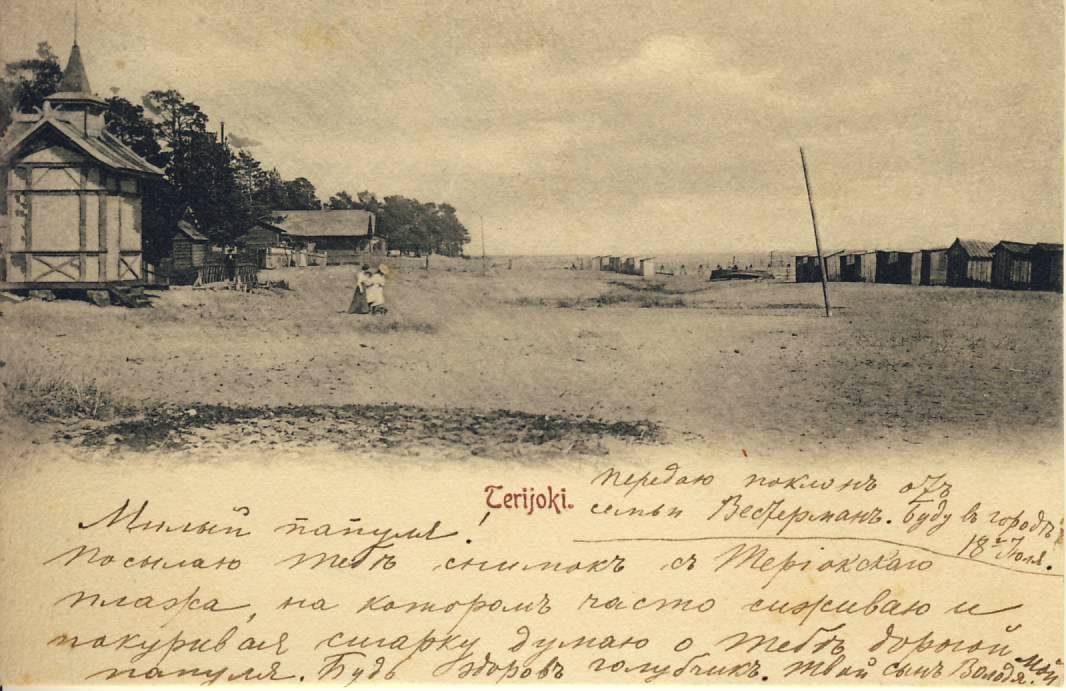 Terijoki.
передаю поклонъ отъ
семьи Вестерманъ. Буду въ городѣ
18го Іюля.
Милый папуля!
Посылаю тебѣ снимокъ съ Теріокскаго
пляжа, на которомъ часто сиживаю и
покуривая сигарку думаю о тебѣ дорогой мой
папуля. Будь здоровъ голубчикъ. Твой сынъ Володя.